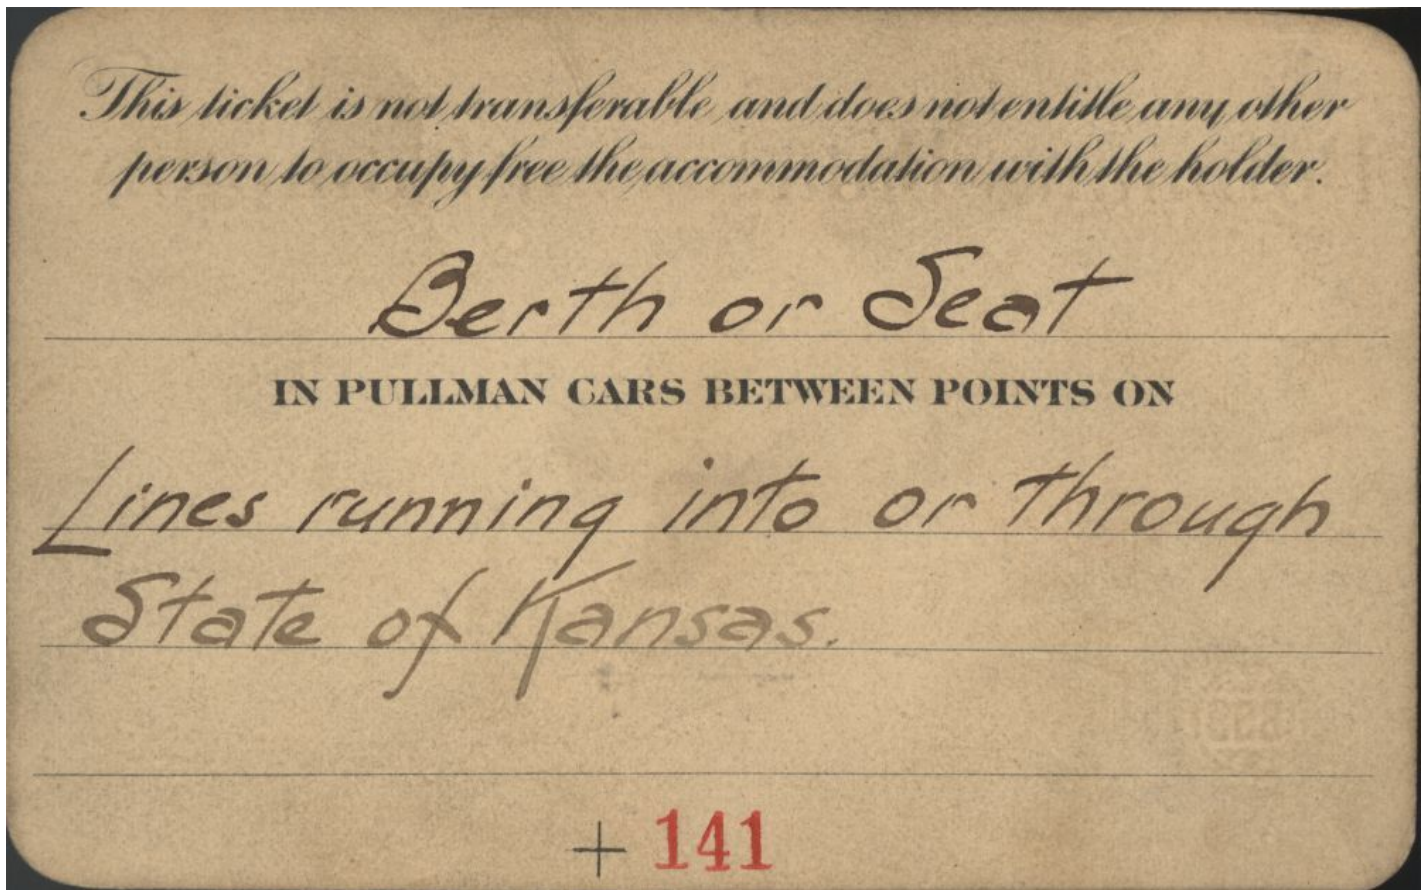 This ticket is not transferable and does not entitle any other
person to occupy free the accommodation with the holder.
Berth or Seat
IN PULLMAN CARS BETWEEN POINTS ON
Lines running into or through
State of Kansas.
+ 141